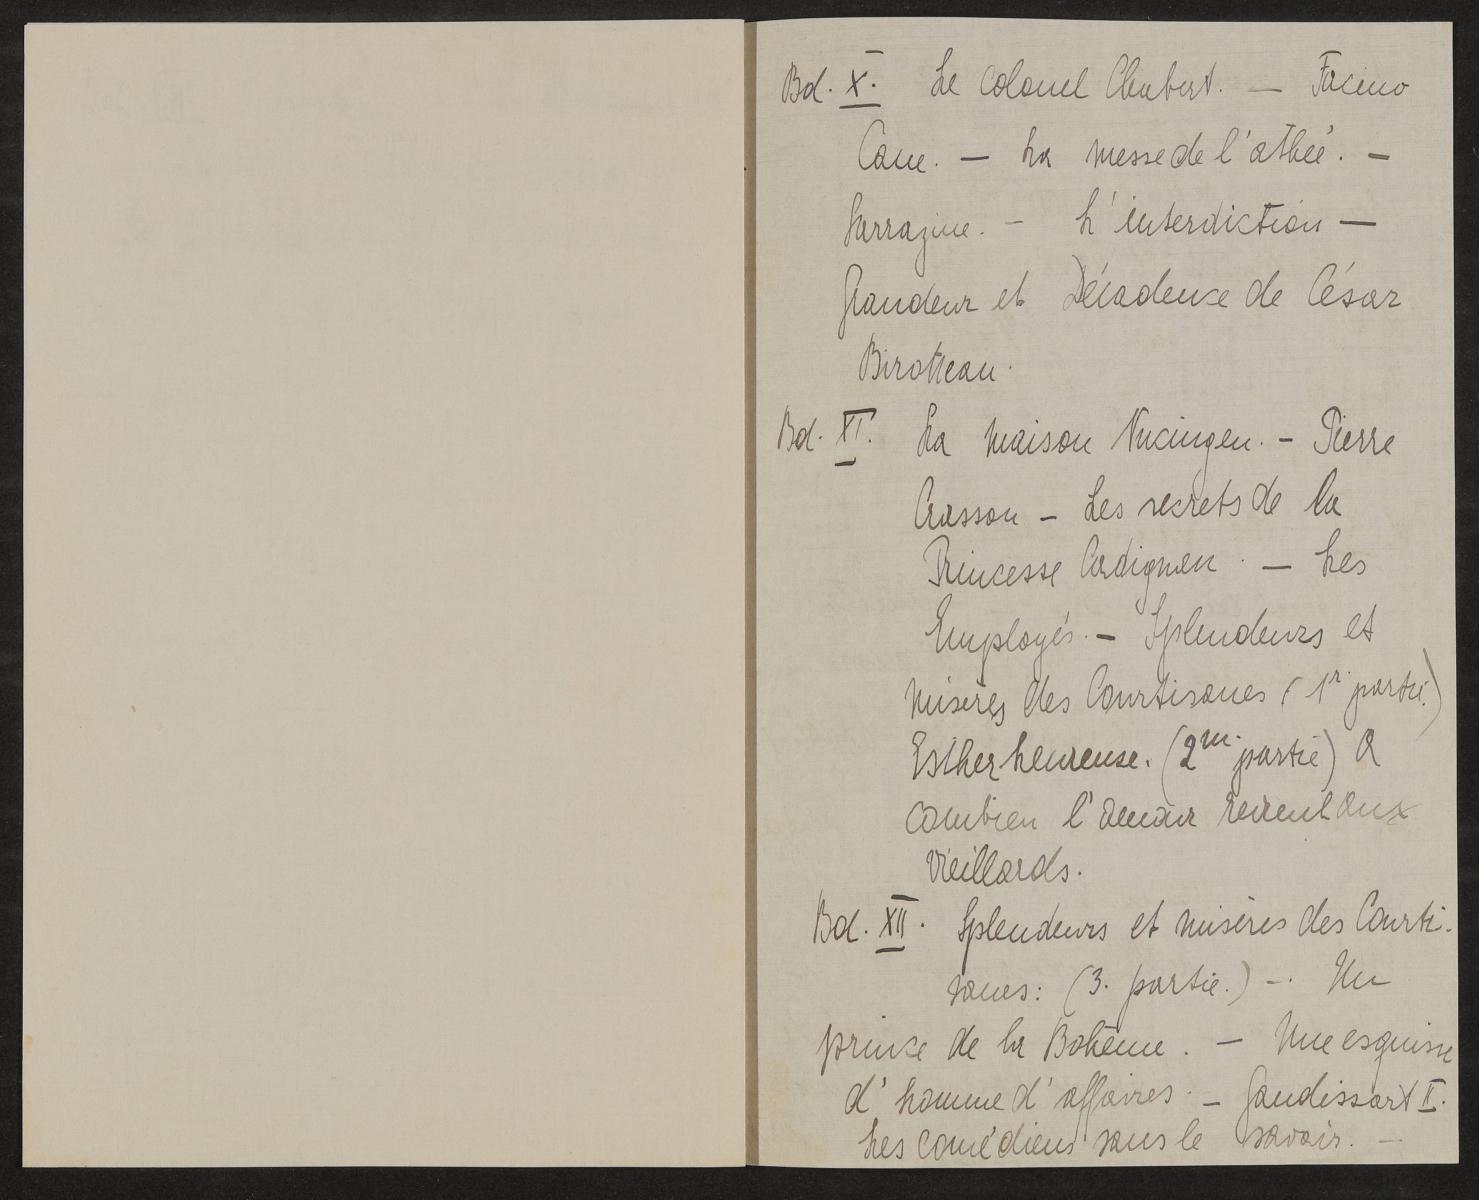 Bd. X. Le Colonel Chabert. — Facino
Cane. — La messe de l'athée. —
Sarrazine. — L'interdiction —
Grandeur et Décadence de César
Birotteau.
Bd. XI. La maison Nucingen. — Pierre
Grassou — Les secrets de la
Princesse Cadignan. — Les
Employés. — Splendeurs et
misères des Courtisanes (1r. partie.)
Esther heureuse. (2m. partie) A
combien l'amour revient aux
Vieillards.
Bd. XII. Splendeurs et misères des Courti-
sanes: (3. partie.) —. Un
prince de la Bohème. — Une esquisse
d'homme d'affaires. — Gaudissart II.
Les comédiens sans le savoir. —